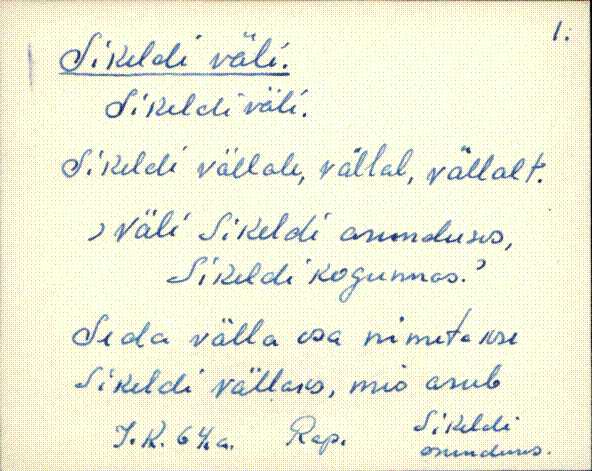 1.
Sikeldi väli.
Sikeldi väli.
Sikeldi vällale, vällal, vällalt.
, väli Sikeldi asunduses,
Sikeldi kogunnas.'
Seda välla osa nimetakse
Sikeldi vällaks, mis asub
J. K. 64 a. Rap. Sikeldi
asunduses.